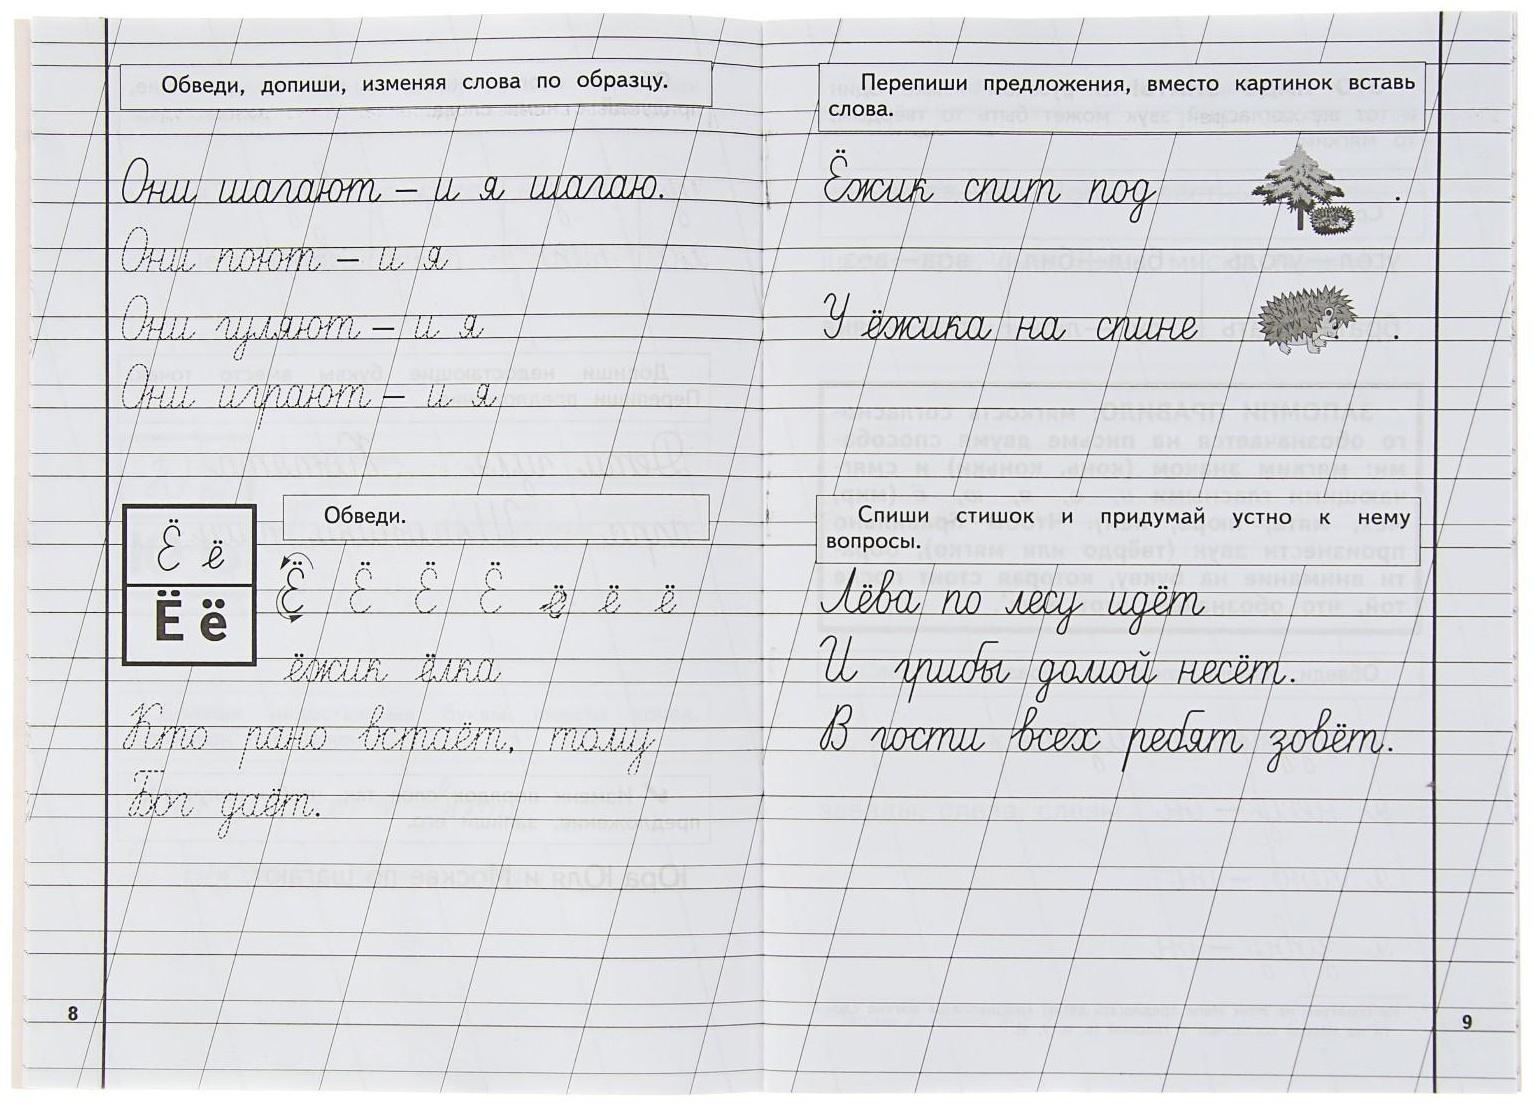 Обведи, допиши, изменяя слова по образцу.
Они шагают – и я шагаю.
Они поют – и я
Они гуляют – и я
Они играют – и я
Ё ё
Ё ё
Обведи.
Ё Ё Ё Ё ё ё ё
ёжик ёлка
Кто рано встаёт, тому
Бог даёт.
8
Перепиши предложения, вместо картинок вставь
слова.
Ёжик спит под .
У ёжика на спине .
Спиши стишок и придумай устно к нему
вопросы.
Лёва по лесу идёт
И грибы домой несёт.
В гости всех ребят зовёт.
9